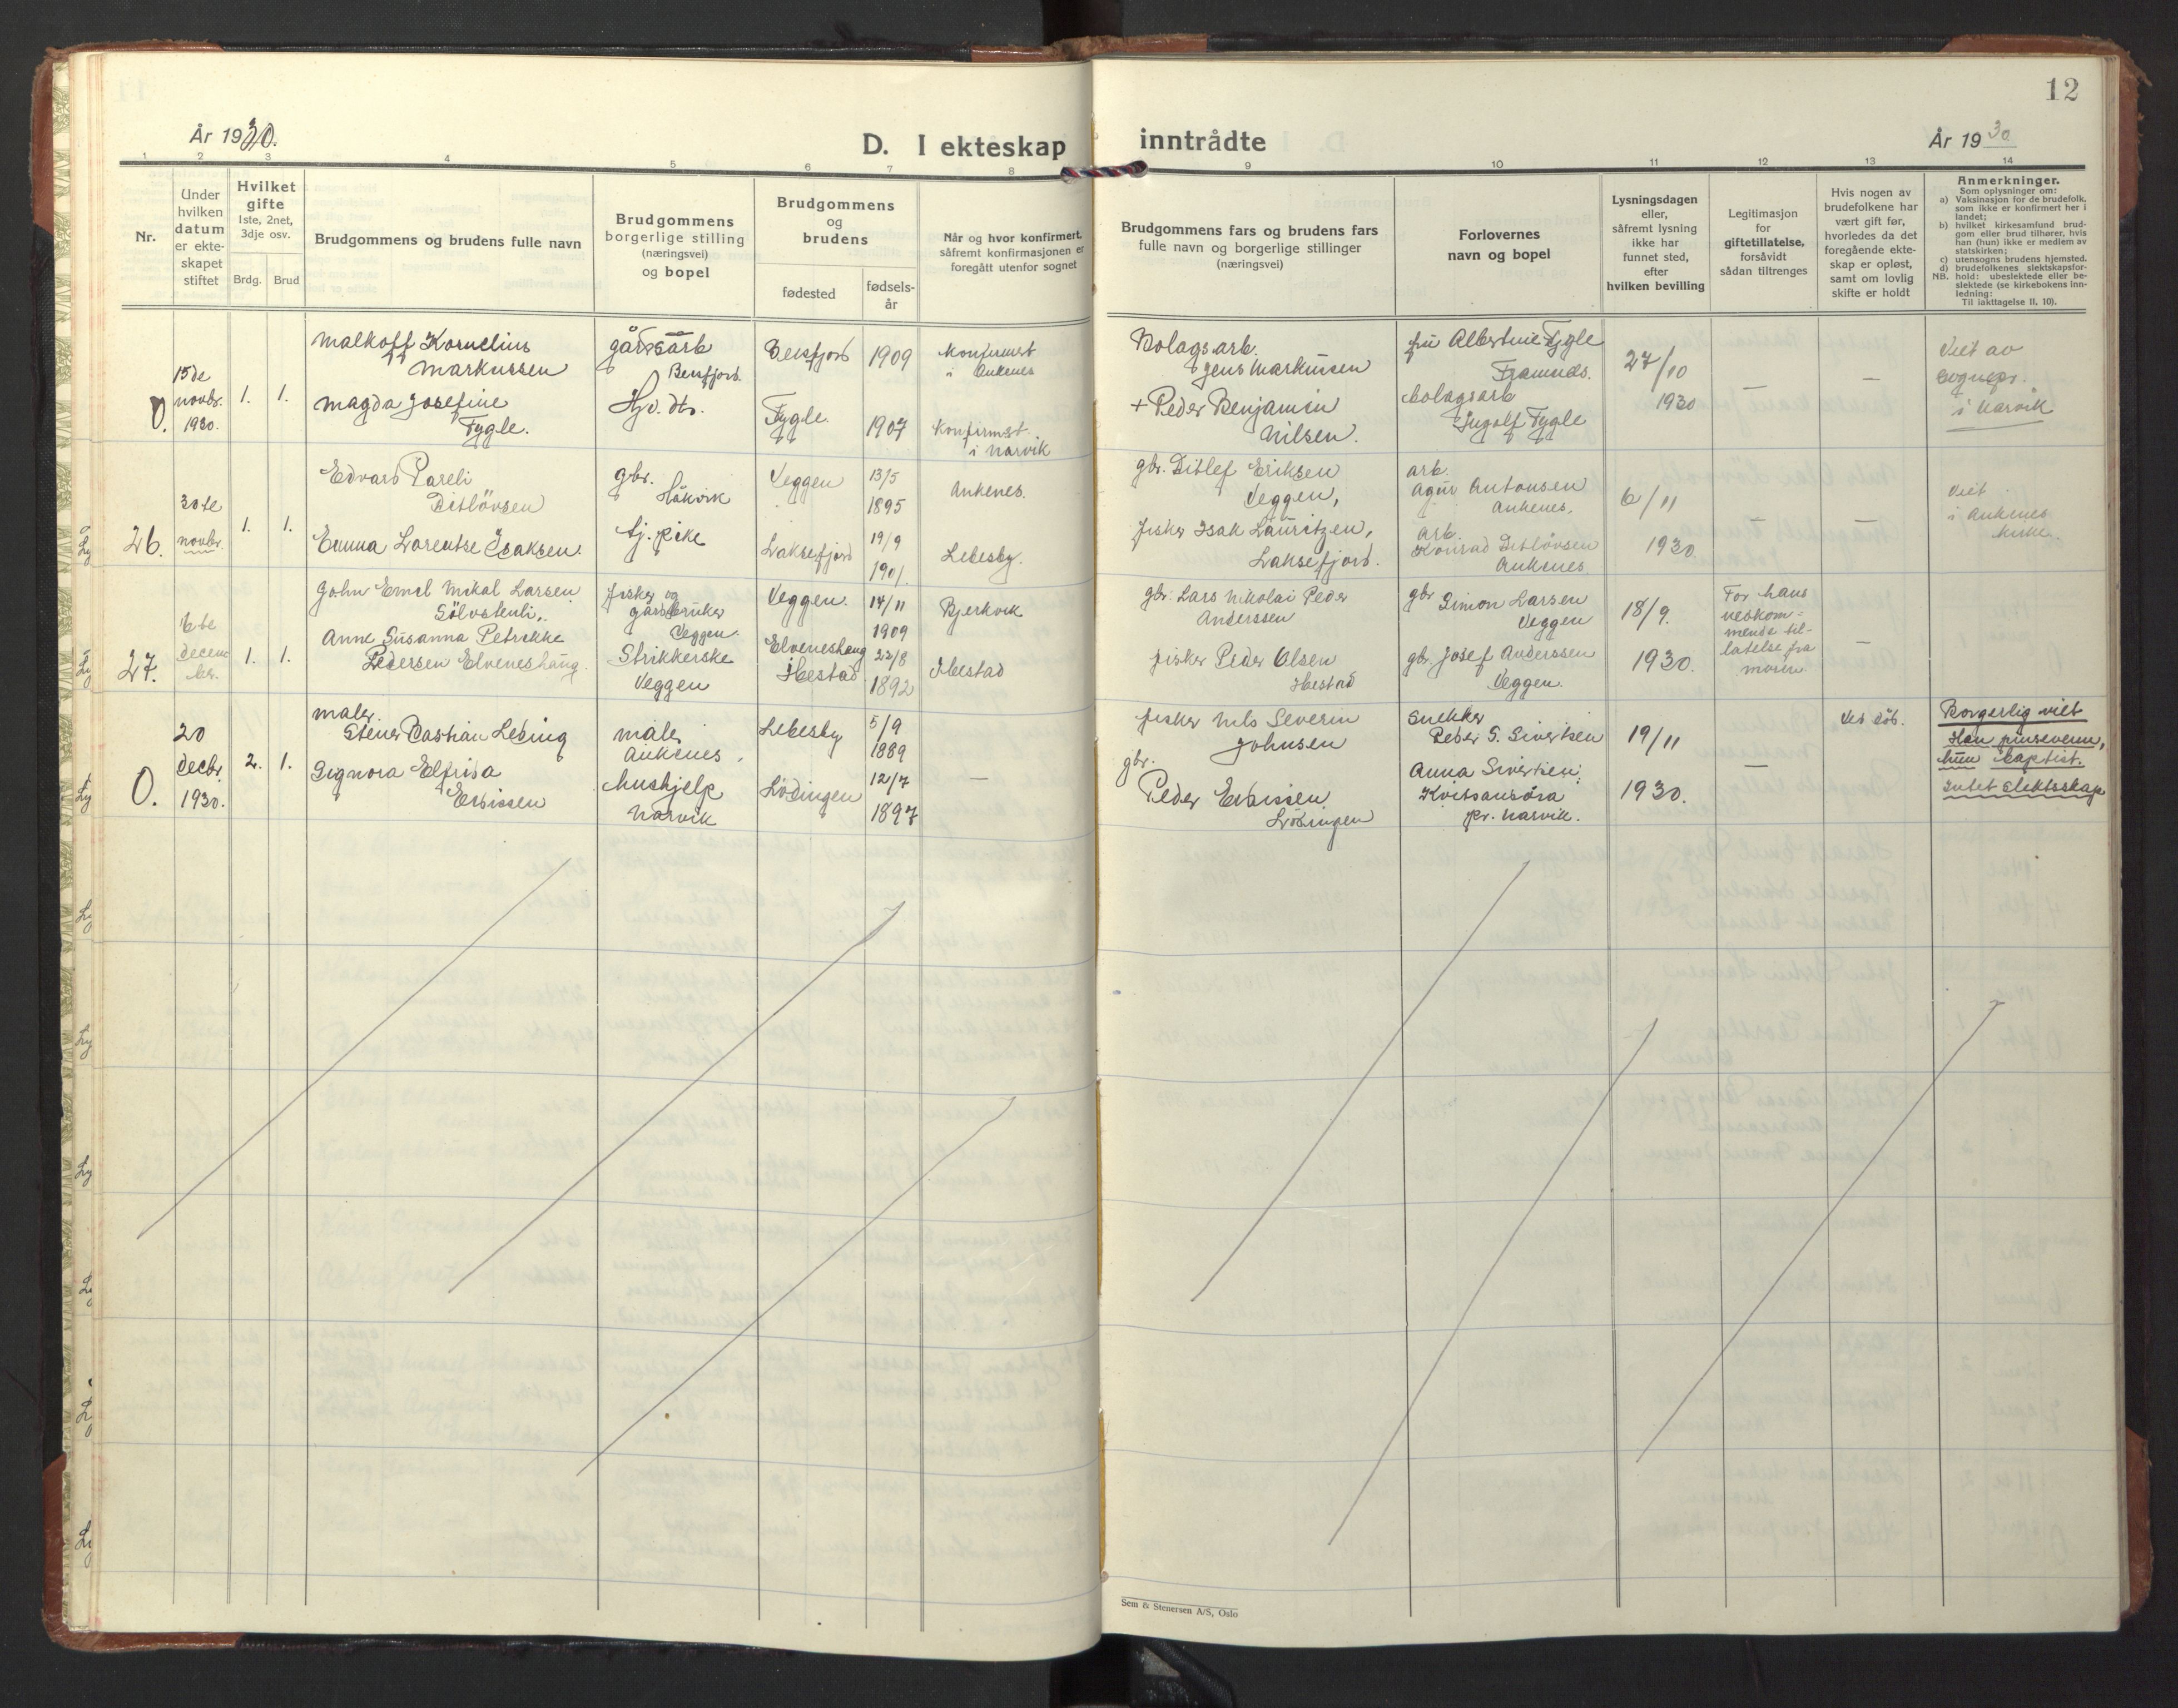 12
År 1930.
D. I ekteskap inntrådte
År 1930
1 2 3 4 5 6 7 8 9 10 11 12 13 14
Nr.
Under
hvilken
datum
er ekte-
skapet
stiftet
Hvilket
gifte
1ste, 2net,
3dje osv.
Brdg. Brud
Brudgommens og brudens fulle navn
Brudgommens
borgerlige stilling
(næringsvei)
og bopel
Brudgommens
og
brudens
fødested
fødsels-
år
Når og hvor konfirmert,
såfremt konfirmasjonen er
foregått utenfor sognet
Brudgommens fars og brudens fars
fulle navn og borgerlige stillinger
(næringsvei)
Forlovernes
navn og bopel
Lysningsdagen
eller,
såfremt lysning
ikke har
funnet sted,
efter
hvilken bevilling
Legitimasjon
for
giftetillatelse,
forsåvidt
sådan tiltrenges
Hvis nogen av
brudefolkene har
vært gift før,
hvorledes da det
foregående ekte-
skap er opløst,
samt om lovlig
skifte er holdt
Anmerkninger.
Som oplysninger om:
a) Vaksinasjon for de brudefolk,
som ikke er konfirmert her i
landet;
b) hvilket kirkesamfund brud-
gom eller brud tilhører, hvis
han (hun) ikke er medlem av
statskirken;
c) utensogns brudens hjemsted.
d) brudefolkenes slektskapsfor-
NB. hold: ubeslektede eller be-
slektede (se kirkebokens inn-
ledning:
Til iakttagelse II, 10).
0.
15de
novbr.
1930.
1. 1.
Malkoff Kornelius
Markussen
Magda Josefine
Fygle.
gårdsarb
Beisfjord.
Hjv. dtr.
Beisfjord 1909
Fygle. 1907
Konfirmert
i Ankenes
Konfirmert
i Narvik
Bolagsarb.
Jens Markussen
+ Peder Benjamin
Nilsen.
fru Albertine Fygle
bolagsarb
Ingolf Fygle
27/10
1930
—
—
Viet av
sognepr.
i Narvik
26.
30te
novbr.
1. 1.
Edvard Pareli
Ditløvsen
Emma Lorentse Isaksen.
gbr.
Håkvik
tj. pike
Veggen 13/5
1895
Laksefjord 19/9
1901.
Ankenes.
Lebesby.
gbr. Ditlef Eriksen
Veggen,
fisker Isak Lauritzen,
Laksefjord.
arb.
Agur Antonsen
Ankenes.
arb.
Konrad Ditløvsen
Ankenes
6/11
1930.
—
—
Viet
i Ankenes
kirke.
27.
16te
decem-
ber.
1. 1.
John Emil Mikal Larsen
Sølvstenli.
Anne Susanna Petrikke
Pedersen Elveneshaug.
fisker og
gårdbruker
Veggen.
Strikkerske
Veggen
Veggen. 14/11
1909
Elveneshaug
Ibestad 22/8
1892
Bjerkvik
Ibestad
gbr. Lars Nikolai Peder
Anderssen
fisker Peder Olsen
Ibestad
gbr Simon Larsen
Veggen
gbr. Josef Anderssen
Veggen.
18/9.
1930.
For hans
vedkom-
mende til-
latelse fra
moren
—
0.
20
decbr.
1930.
2. 1.
maler.
Stener Bastian Lebing
Signora Elfrida
Erdissen
maler
Ankenes.
hushjelp
Narvik
Lebesby 5/9
1889
Lødingen 12/7
1897
—
fisker Nils Severin
Johnsen
gbr.
Peder Erdissen
Lødingen
Snekker
Peder S. Sivertsen
Anna Sivertsen.
Kvitsandøra
pr. Narvik.
19/11
1930.
—
Ved død.
Borgerlig viet
Han pinsevenn,
hun baptist.
Intet slektsskap
Sem & Stenersen A/S, Oslo